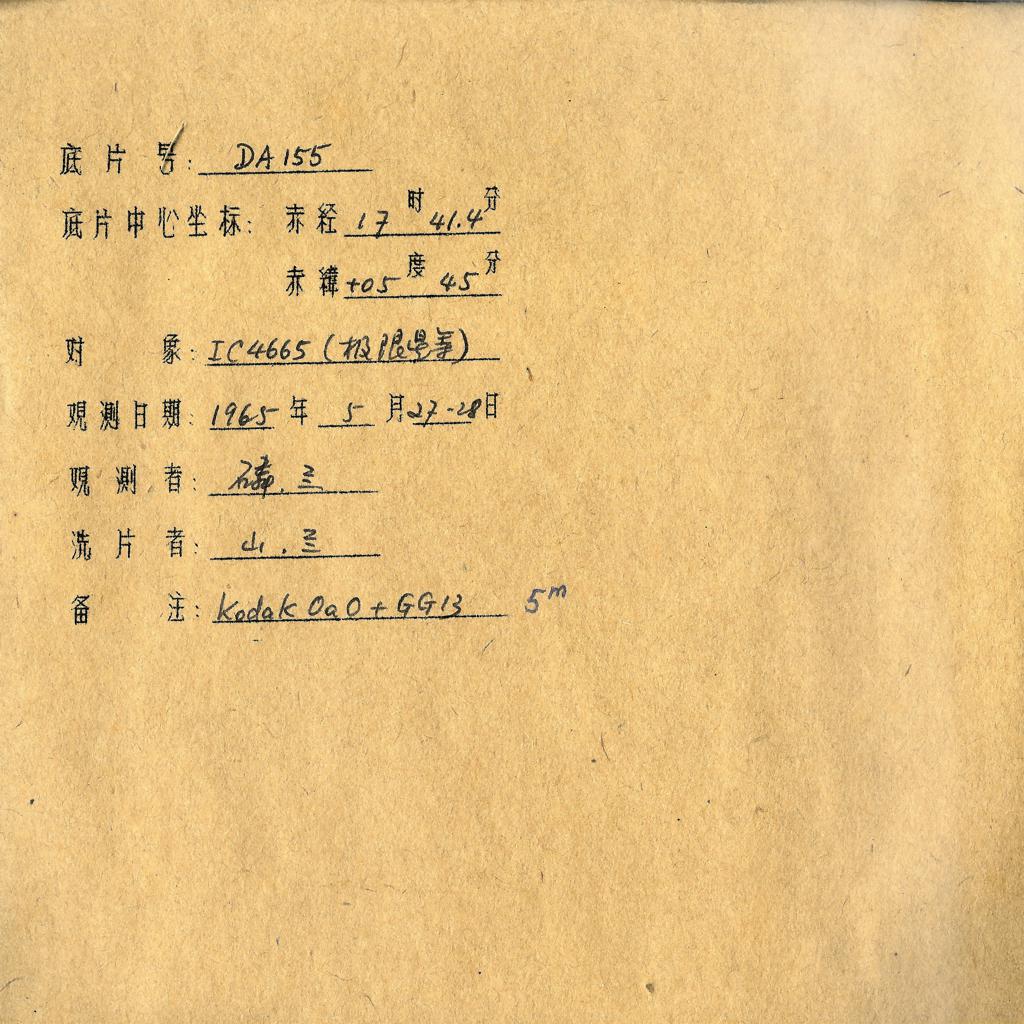 底片号: DA155
底片中心坐标: 赤经 17时 41.4分
赤緯 +05度 45分
对象: IC4665 (极限星等)
观测日期: 1965年 5月27-28日
观测者: 磷.兰
洗片者: 山.兰
备注: Kodak OaO + GG13 5m